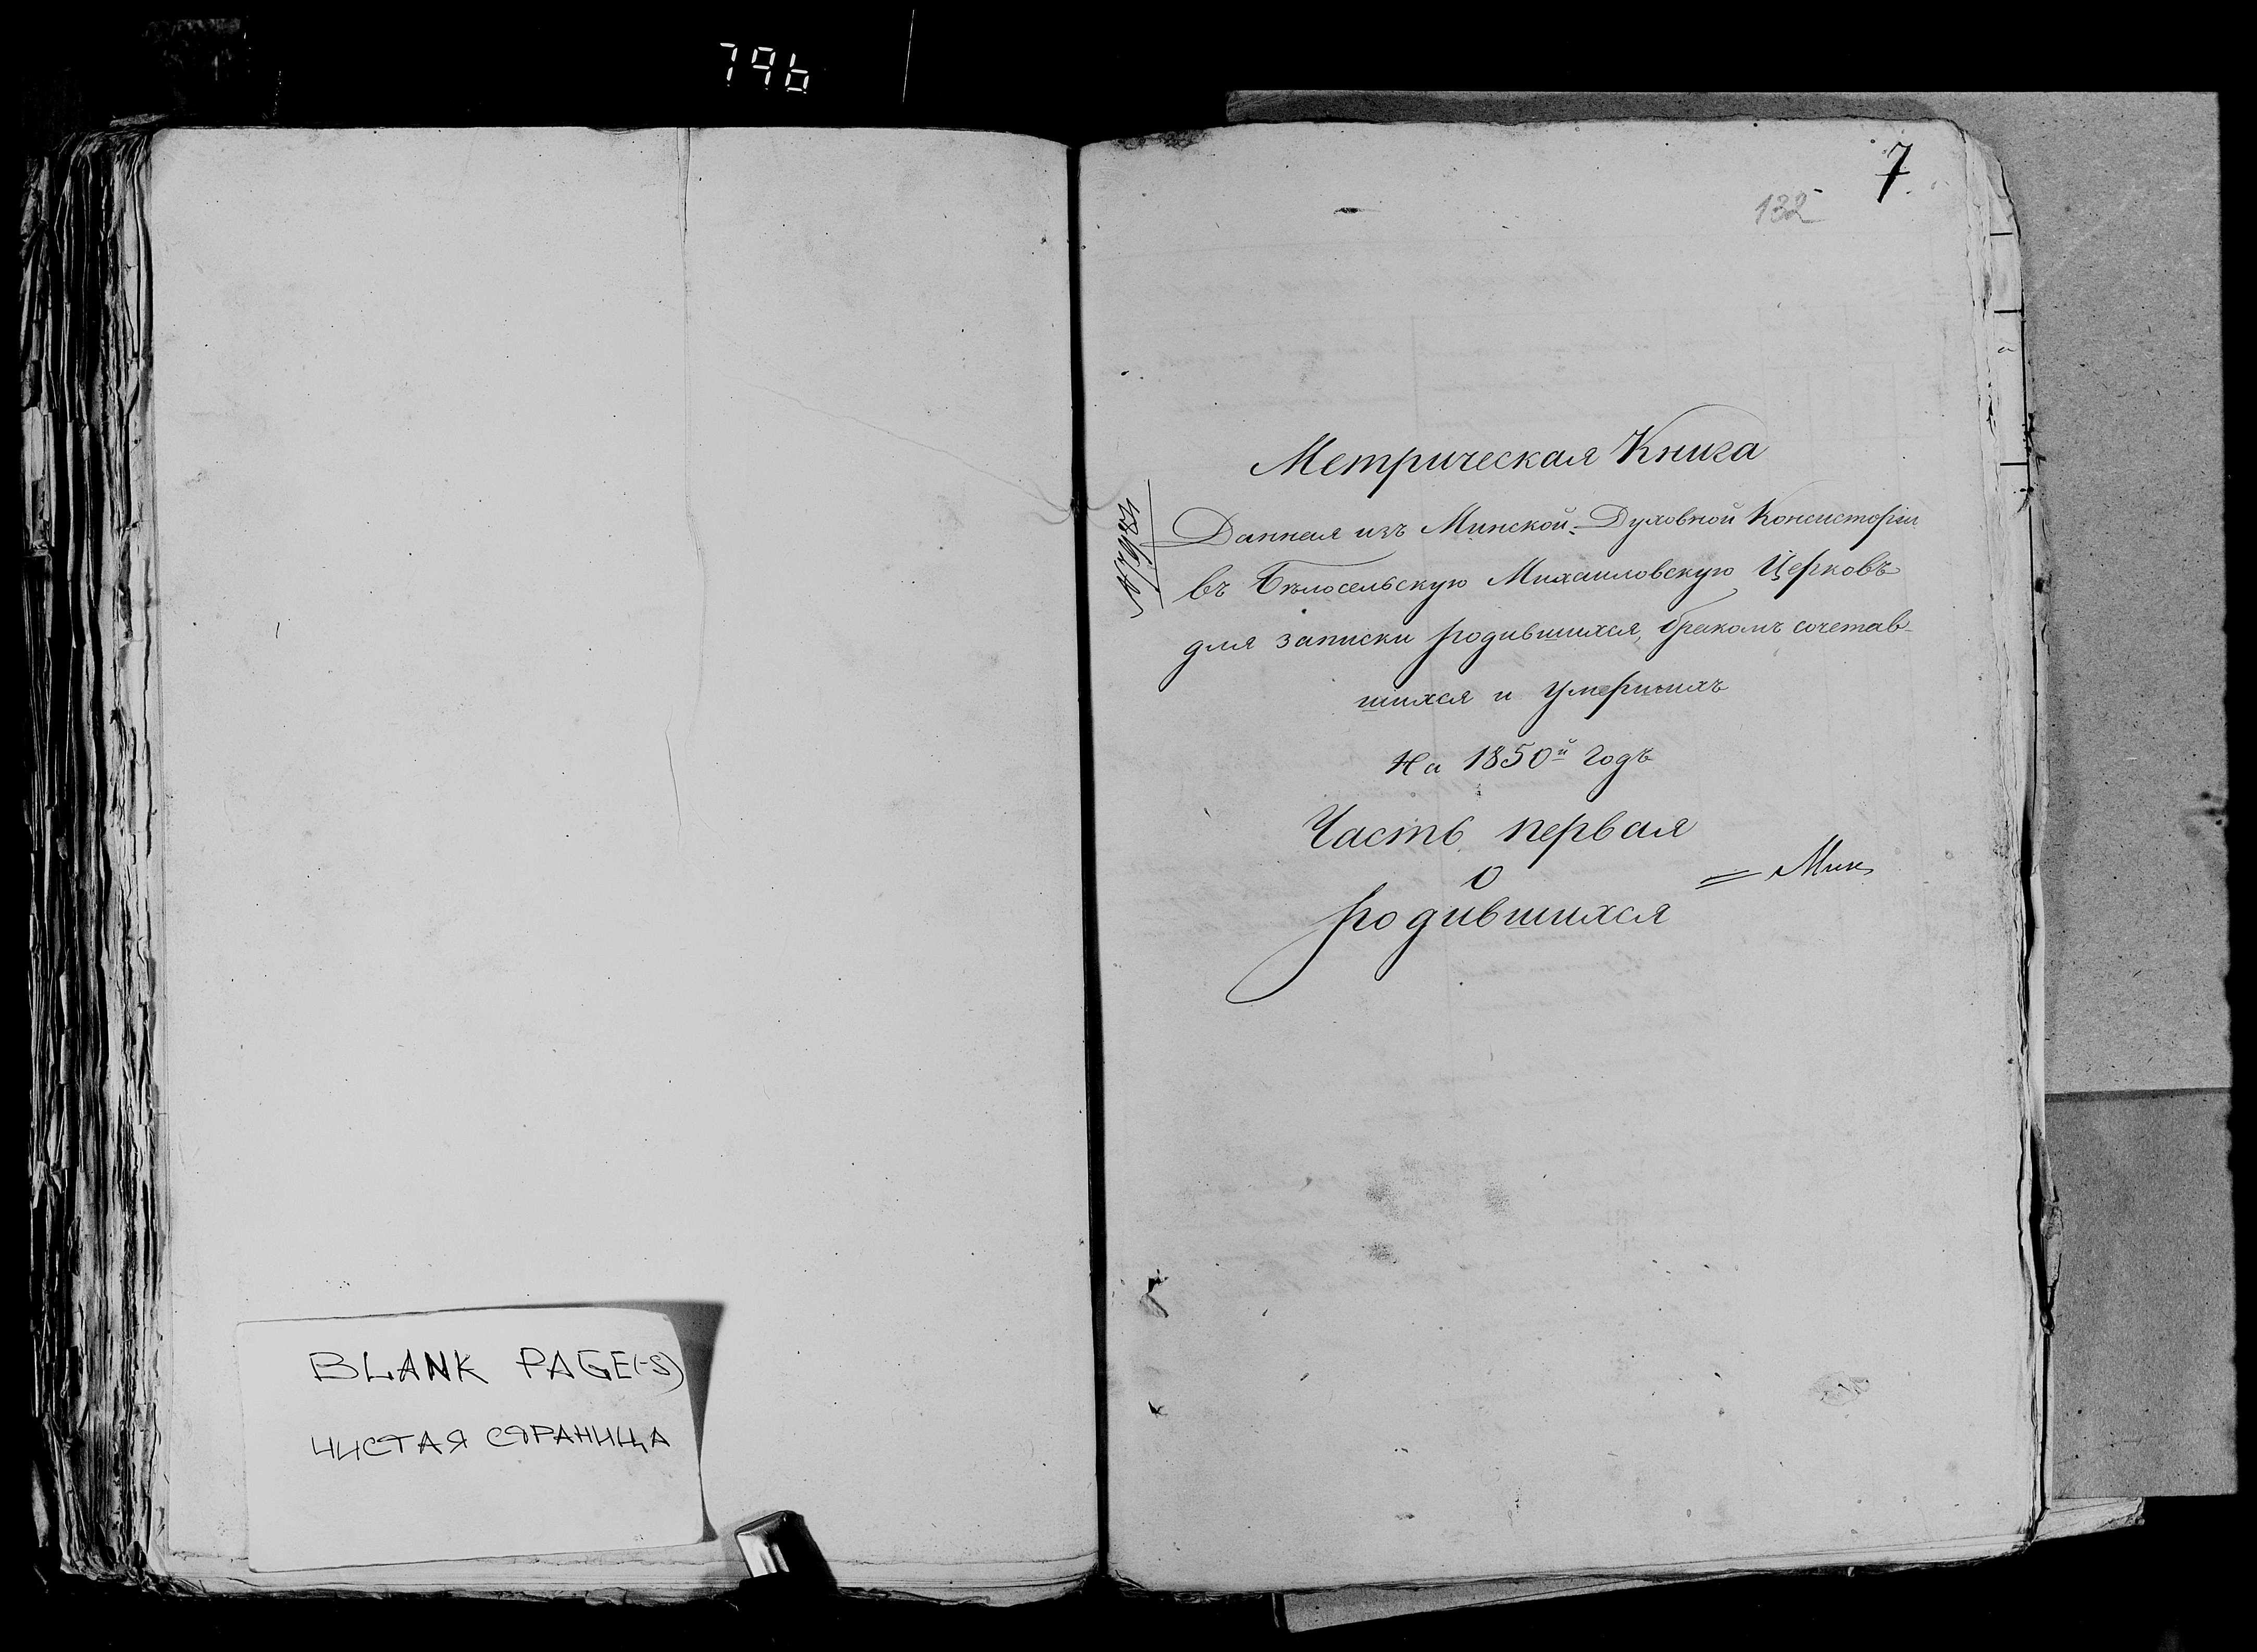 796
BLANK PAGE(-S)
ЧИСТАЯ СТРАНИЦА
7
132
Метрическая Книга
Данная изъ Минской Духовной Консисторіи
въ Бѣлосельскую Михаиловскую Церковь
для записки родившихся, бракомъ сочетав-
шихся и умершихъ
На 1850й годъ
Часть первая
о
родившихся
= Мин